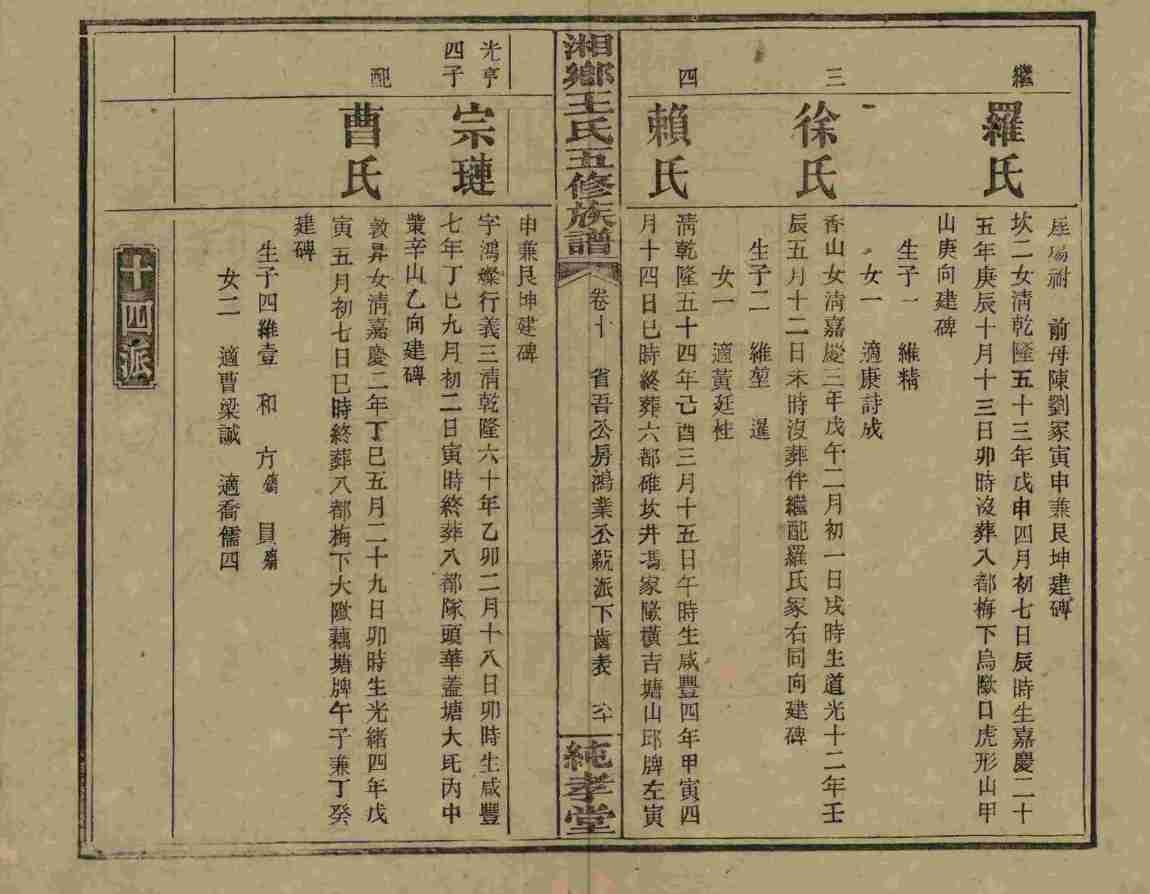 屋場祔 前母陳劉冢寅申兼艮坤建碑
繼 羅氏
坎二女清乾隆五十三年戊申四月初七日辰時生嘉慶二十
五年庚辰十月十三日卯時沒葬八都梅下烏歟口虎形山甲
山庚向建碑
生子一 維精
女一 適康詩成
三 徐氏
香山女清嘉慶三年戊午二月初一日戌時生道光十二年壬
辰五月十二日未時沒葬伴繼配羅氏冢右同向建碑
生子二 維堃 暹
女一 適黃廷性
四 賴氏
清乾隆五十四年己酉三月十五日午時生咸豐四年甲寅四
月十四日巳時終葬六都碓坎井馮家歟橫吉塘山邱牌左寅
湘鄉王氏五修族譜
卷十 省吾公房鴻業公
派下齒表 六十
純孝堂
申兼艮坤建碑
光亨四子 宗璉
字鴻燦行義三清乾隆六十年乙卯二月十八日卯時生咸豐
七年丁巳九月初二日寅時終葬八都隊頭華蓋塘大 丙中
辛山乙向建碑
配 曹氏
敦昇女清嘉慶二年丁巳五月二十九日卯時生光緒四年戊
寅五月初七日巳時終葬八都梅下大歟藕塘牌午子兼丁癸
建碑
生子四維壹 和 方 殤 員 殤
女二 適曹梁誠 適喬儒四
十四派